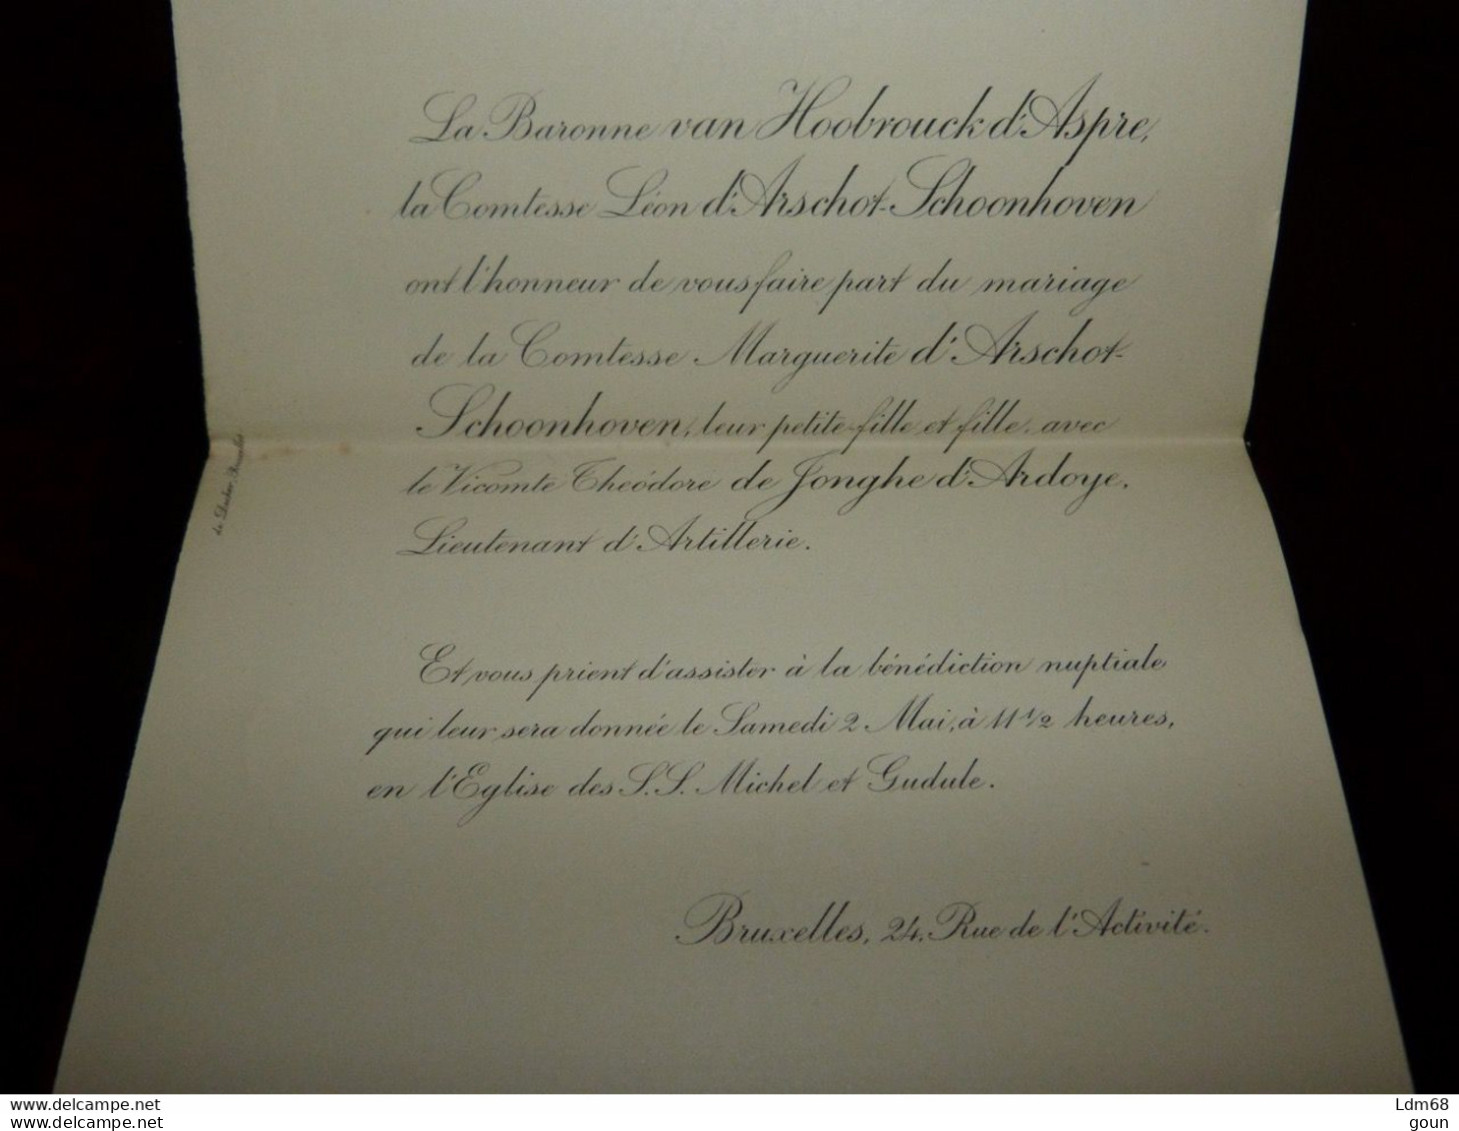 La Baronne van Hoobrouck d'Aspre,
la Comtesse Léon d'Arschot-Schoonhoven
ont l'honneur de vous faire part du mariage
de la Comtesse Marguerite d'Arschot-
Schoonhoven, leur petite-fille et fille, avec
le Vicomte Théodore de Jonghe d'Ardoye,
Lieutenant d'Artillerie.
Et vous prient d'assister à la bénédiction nuptiale
qui leur sera donnée le Samedi 2 Mai, à 11 1/2 heures,
en l'Eglise des S.S. Michel et Gudule.
Bruxelles, 24, Rue de l'Activité.
www.delcampe.net
www.delcampe.net
Ldm68
goun